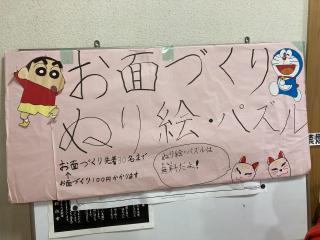 お面づくり
ぬり絵・パズル
お面づくり先着30名まで
↑
お面づくり100円かかります
ぬり絵・パズルは
無料だよ!